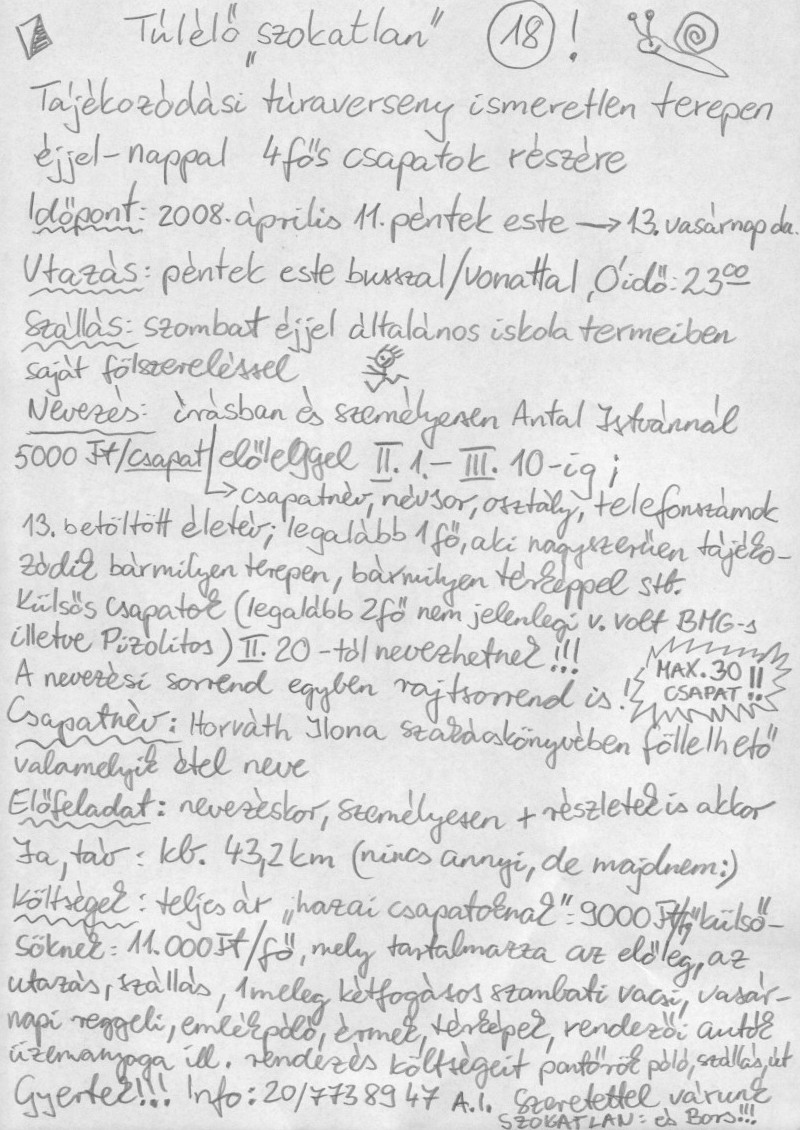 Túlélő „szokatlan" 18!
Tájékozódási túraverseny ismeretlen terepen
éjjel-nappal 4fős csapatok részére
Időpont: 2008. április 11. péntek este → 13. vasárnap du.
Utazás: péntek este busszal/vonattal, Ó idő: 23⁰⁰
Szállás: szombat éjjel általános iskola termeiben
saját fölszereléssel
Nevezés: írásban és személyesen Antal Istvánnál
5000 Ft/csapat előleggel II. 1.– III. 10-ig ;
→ csapatnév, névsor, osztály, telefonszámok
13. betöltött életév; legalább 1 fő, aki nagyszerűen tájéko-
zódik bármilyen terepen, bármilyen térképpel stb.
Külsős csapatok (legalább 2fő nem jelenlegi v. volt BMG-s
illetve Pizolitos) II. 20-tól nevezhetnek!!!
A nevezési sorrend egyben rajtsorrend is!
MAX. 30
CSAPAT!!
Csapatnév: Horváth Ilona szakácskönyvében föllelhető
valamelyik étel neve
Előfeladat: nevezéskor, személyesen + részletek is akkor
Ja, táv: kb. 43,2 km (nincs annyi, de majdnem:)
Költségek: teljes ár „hazai csapatoknak"= 9000 Ft/fő, "külső-
söknek: 11.000 Ft/fő, mely tartalmazza az előleg, az
utazás, szállás, 1 meleg kétfogásos szombati vacsi, vasár-
napi reggeli, emlékpóló, érmek, térképek, rendezői autók
üzemanyaga ill. rendezés költségeit pontőrök póló, szállás, út
Gyertek!!! Info: 20/7738947 A.I. Szeretettel várunk
SZOKATLAN: és Bors!!!